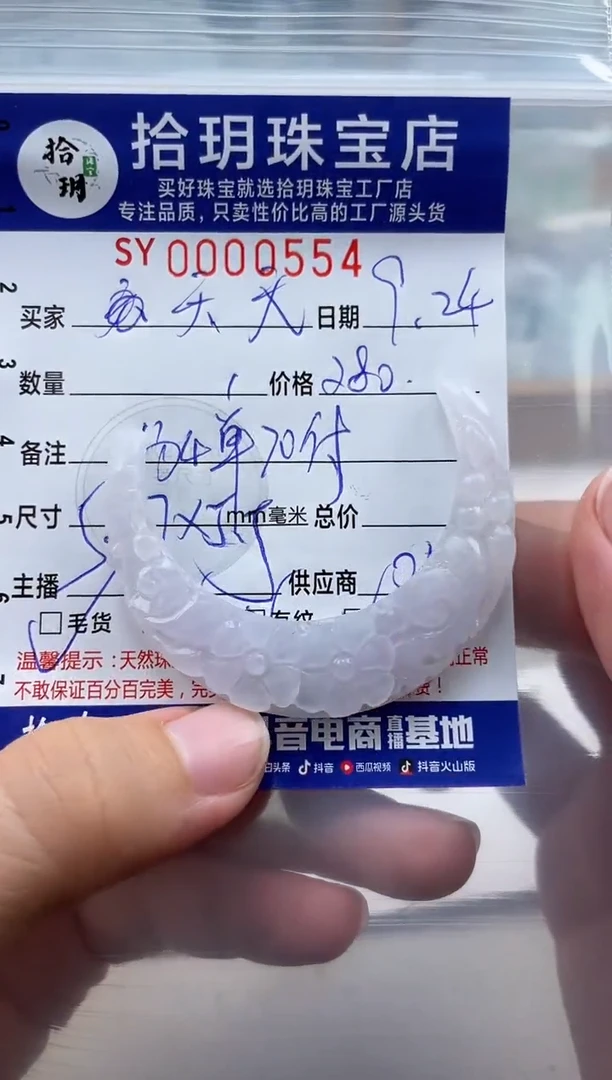 拾玥
拾玥珠宝店
买好珠宝就选拾玥珠宝工厂店
专注品质，只卖性价比高的工厂源头货
SY 0000554
买家 日期 9.24
数量 1 价格 280.
备注 单70付
尺寸 mm毫米 总价
主播 供应商
毛货 有纹
温馨提示：天然珠 正常
不敢保证百分百完美，完 ！
音电商直播基地
头条 抖音 西瓜视频 抖音火山版
2
3
4
5
6
7